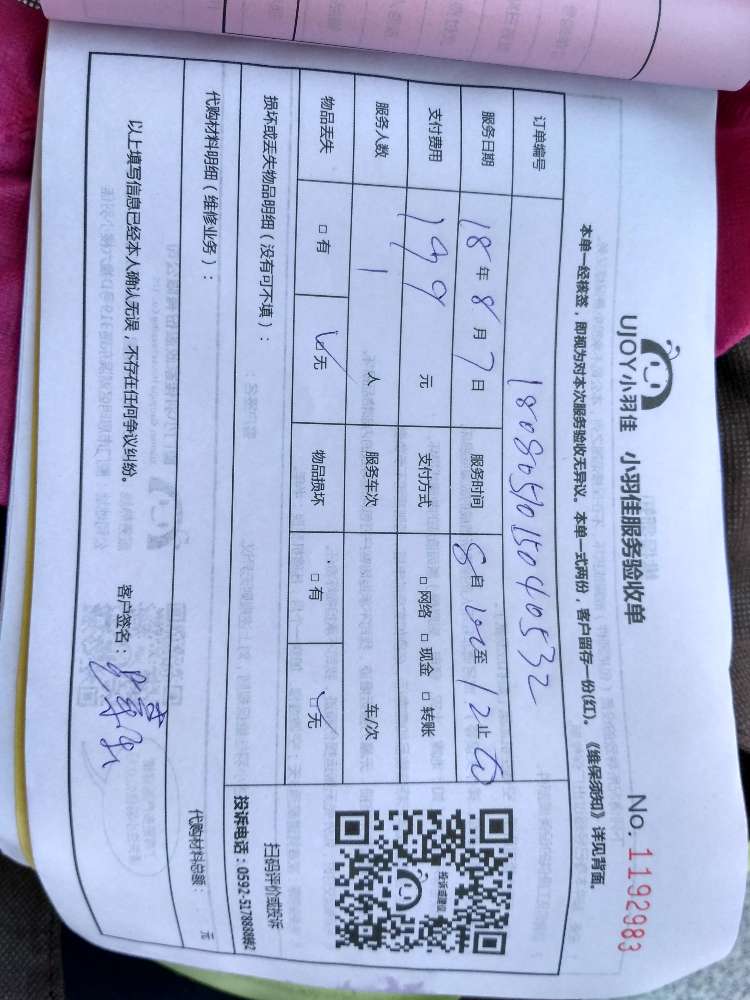 UJOY小羽佳 小羽佳服务验收单 No. 1192983
本单一经核签，即视为对本次服务验收无异议。本单一式两份，客户留存一份(红)。《维保须知》详见背面。
订单编号 1808051015040532
服务日期 18年8月7日 服务时间 8自00至12止00
支付费用 199元 支付方式 □网络 □现金 □转账
服务人数 1人 服务车次 车/次
物品丢失 □有 ☑无 物品损坏 □有 ☑无
损坏或丢失物品明细（没有可不填）：
投诉或建议
扫码评价或投诉
投诉电话：0592-5178888转2
代购材料明细（维修业务）：
代购材料总额： 元
以上填写信息已经本人确认无误，不存在任何争议纠纷。 客户签名：